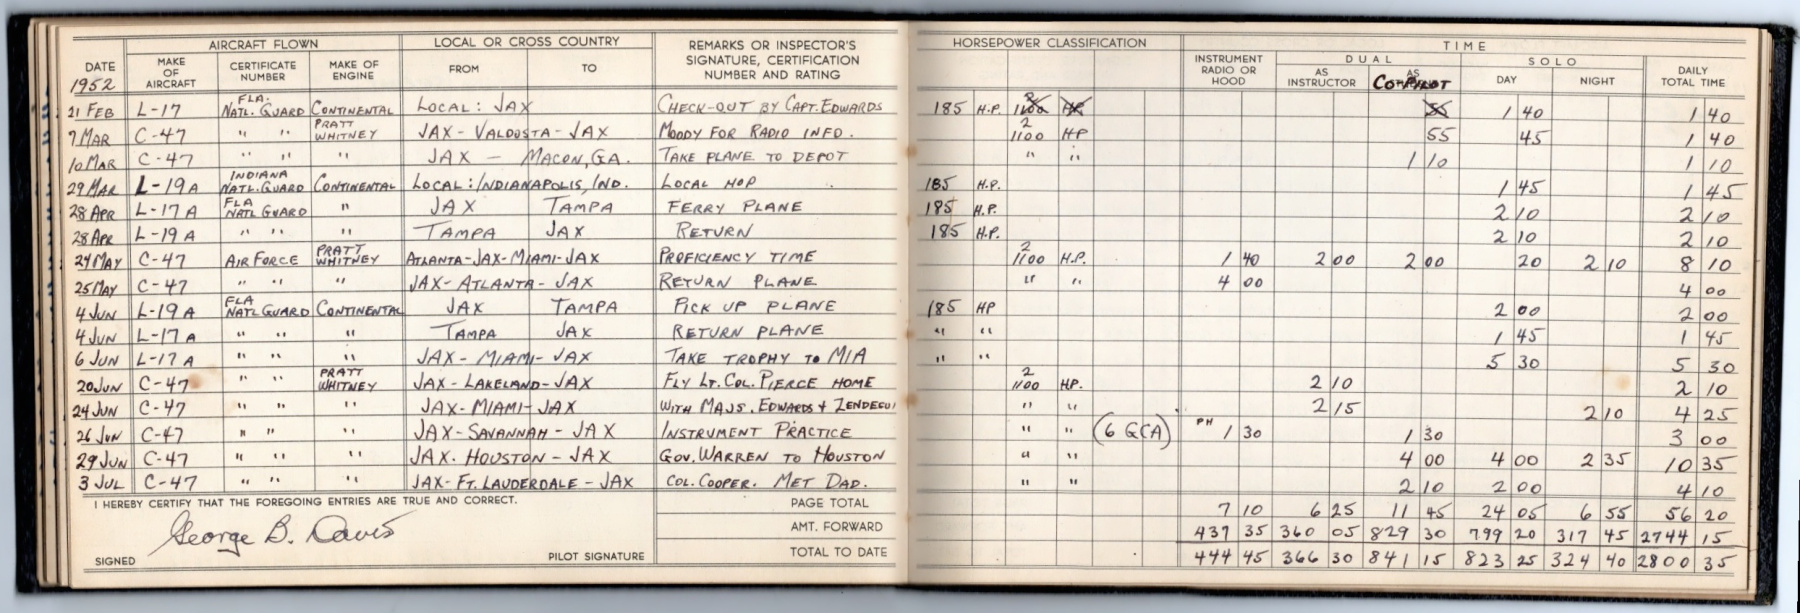 AIRCRAFT FLOWN LOCAL OR CROSS COUNTRY REMARKS OR INSPECTOR'S SIGNATURE, CERTIFICATION NUMBER AND RATING HORSEPOWER CLASSIFICATION TIME
DATE MAKE OF AIRCRAFT CERTIFICATE NUMBER MAKE OF ENGINE FROM TO INSTRUMENT RADIO OR HOOD DUAL AS INSTRUCTOR AS CO PILOT SOLO DAY NIGHT DAILY TOTAL TIME
1952
21 FEB L-17 FLA. NATL. GUARD CONTINENTAL LOCAL: JAX CHECK-OUT BY CAPT. EDWARDS 185 H.P. 2 1100 HP 55 1 40 1 40
7 MAR C-47 " " PRATT WHITNEY JAX - VALDOSTA - JAX MOODY FOR RADIO INFO. 2 1100 HP 55 45 1 40
10 MAR C-47 " " " JAX - MACON, GA. TAKE PLANE TO DEPOT " " 1 10 1 10
29 MAR L-19A INDIANA NATL. GUARD CONTINENTAL LOCAL: INDIANAPOLIS, IND. LOCAL HOP 185 H.P. 1 45 1 45
28 APR L-17A FLA NATL GUARD " JAX TAMPA FERRY PLANE 185 H.P. 2 10 2 10
28 APR L-19A " " " TAMPA JAX RETURN 185 H.P. 2 10 2 10
24 MAY C-47 AIR FORCE PRATT WHITNEY ATLANTA-JAX-MIAMI-JAX PROFICIENCY TIME 2 1100 H.P. 1 40 2 00 2 00 20 2 10 8 10
25 MAY C-47 " " " JAX-ATLANTA-JAX RETURN PLANE " " 4 00 4 00
4 JUN L-19A FLA NATL GUARD CONTINENTAL JAX TAMPA PICK UP PLANE 185 HP 2 00 2 00
4 JUN L-17A " " " TAMPA JAX RETURN PLANE " " 1 45 1 45
6 JUN L-17A " " " JAX - MIAMI - JAX TAKE TROPHY TO MIA " " 5 30 5 30
20 JUN C-47 " " PRATT WHITNEY JAX-LAKELAND-JAX FLY LT. COL. PIERCE HOME 2 1100 HP. 2 10 2 10
24 JUN C-47 " " " JAX-MIAMI-JAX WITH MAJS. EDWARDS + ZENDEGUI " " 2 15 2 10 4 25
26 JUN C-47 " " " JAX-SAVANNAH-JAX INSTRUMENT PRACTICE " " (6 GCA) PH 1 30 1 30 3 00
29 JUN C-47 " " " JAX. HOUSTON - JAX GOV. WARREN TO HOUSTON " " 4 00 4 00 2 35 10 35
3 JUL C-47 " " " JAX-FT. LAUDERDALE - JAX COL. COOPER. MET DAD. " " 2 10 2 00 4 10
I HEREBY CERTIFY THAT THE FOREGOING ENTRIES ARE TRUE AND CORRECT.
PAGE TOTAL 7 10 6 25 11 45 24 05 6 55 56 20
George B. Davis
AMT. FORWARD 437 35 360 05 829 30 799 20 317 45 2744 15
SIGNED PILOT SIGNATURE
TOTAL TO DATE 444 45 366 30 841 15 823 25 324 40 2800 35